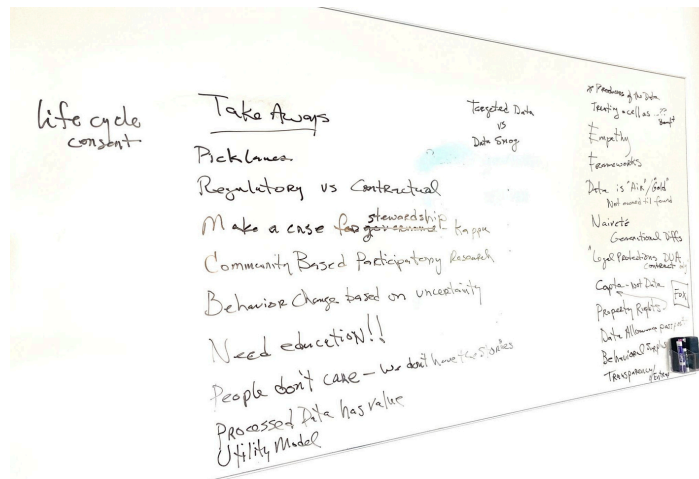 life cycle
consent
Take Aways
Pick lanes
Regulatory vs Contractual
Make a case for governance stewardship Kappa
Community Based Participatory Research
Behavior Change based on uncertainty
Need education!!
People don't care - we don't have the stories
Processed Data has value
Utility Model
Targeted Data
vs
Data Smog
* Producers of the Data
Treating a cell as ..??
Empathy
Frameworks
Data is "Air"/"Gold"
Not owned til found
Naiveté
Generational Diffs
Legal Protections DUA
contract
Capta - not Data
Property Rights
Data Allowance
Behavioral
Transparency